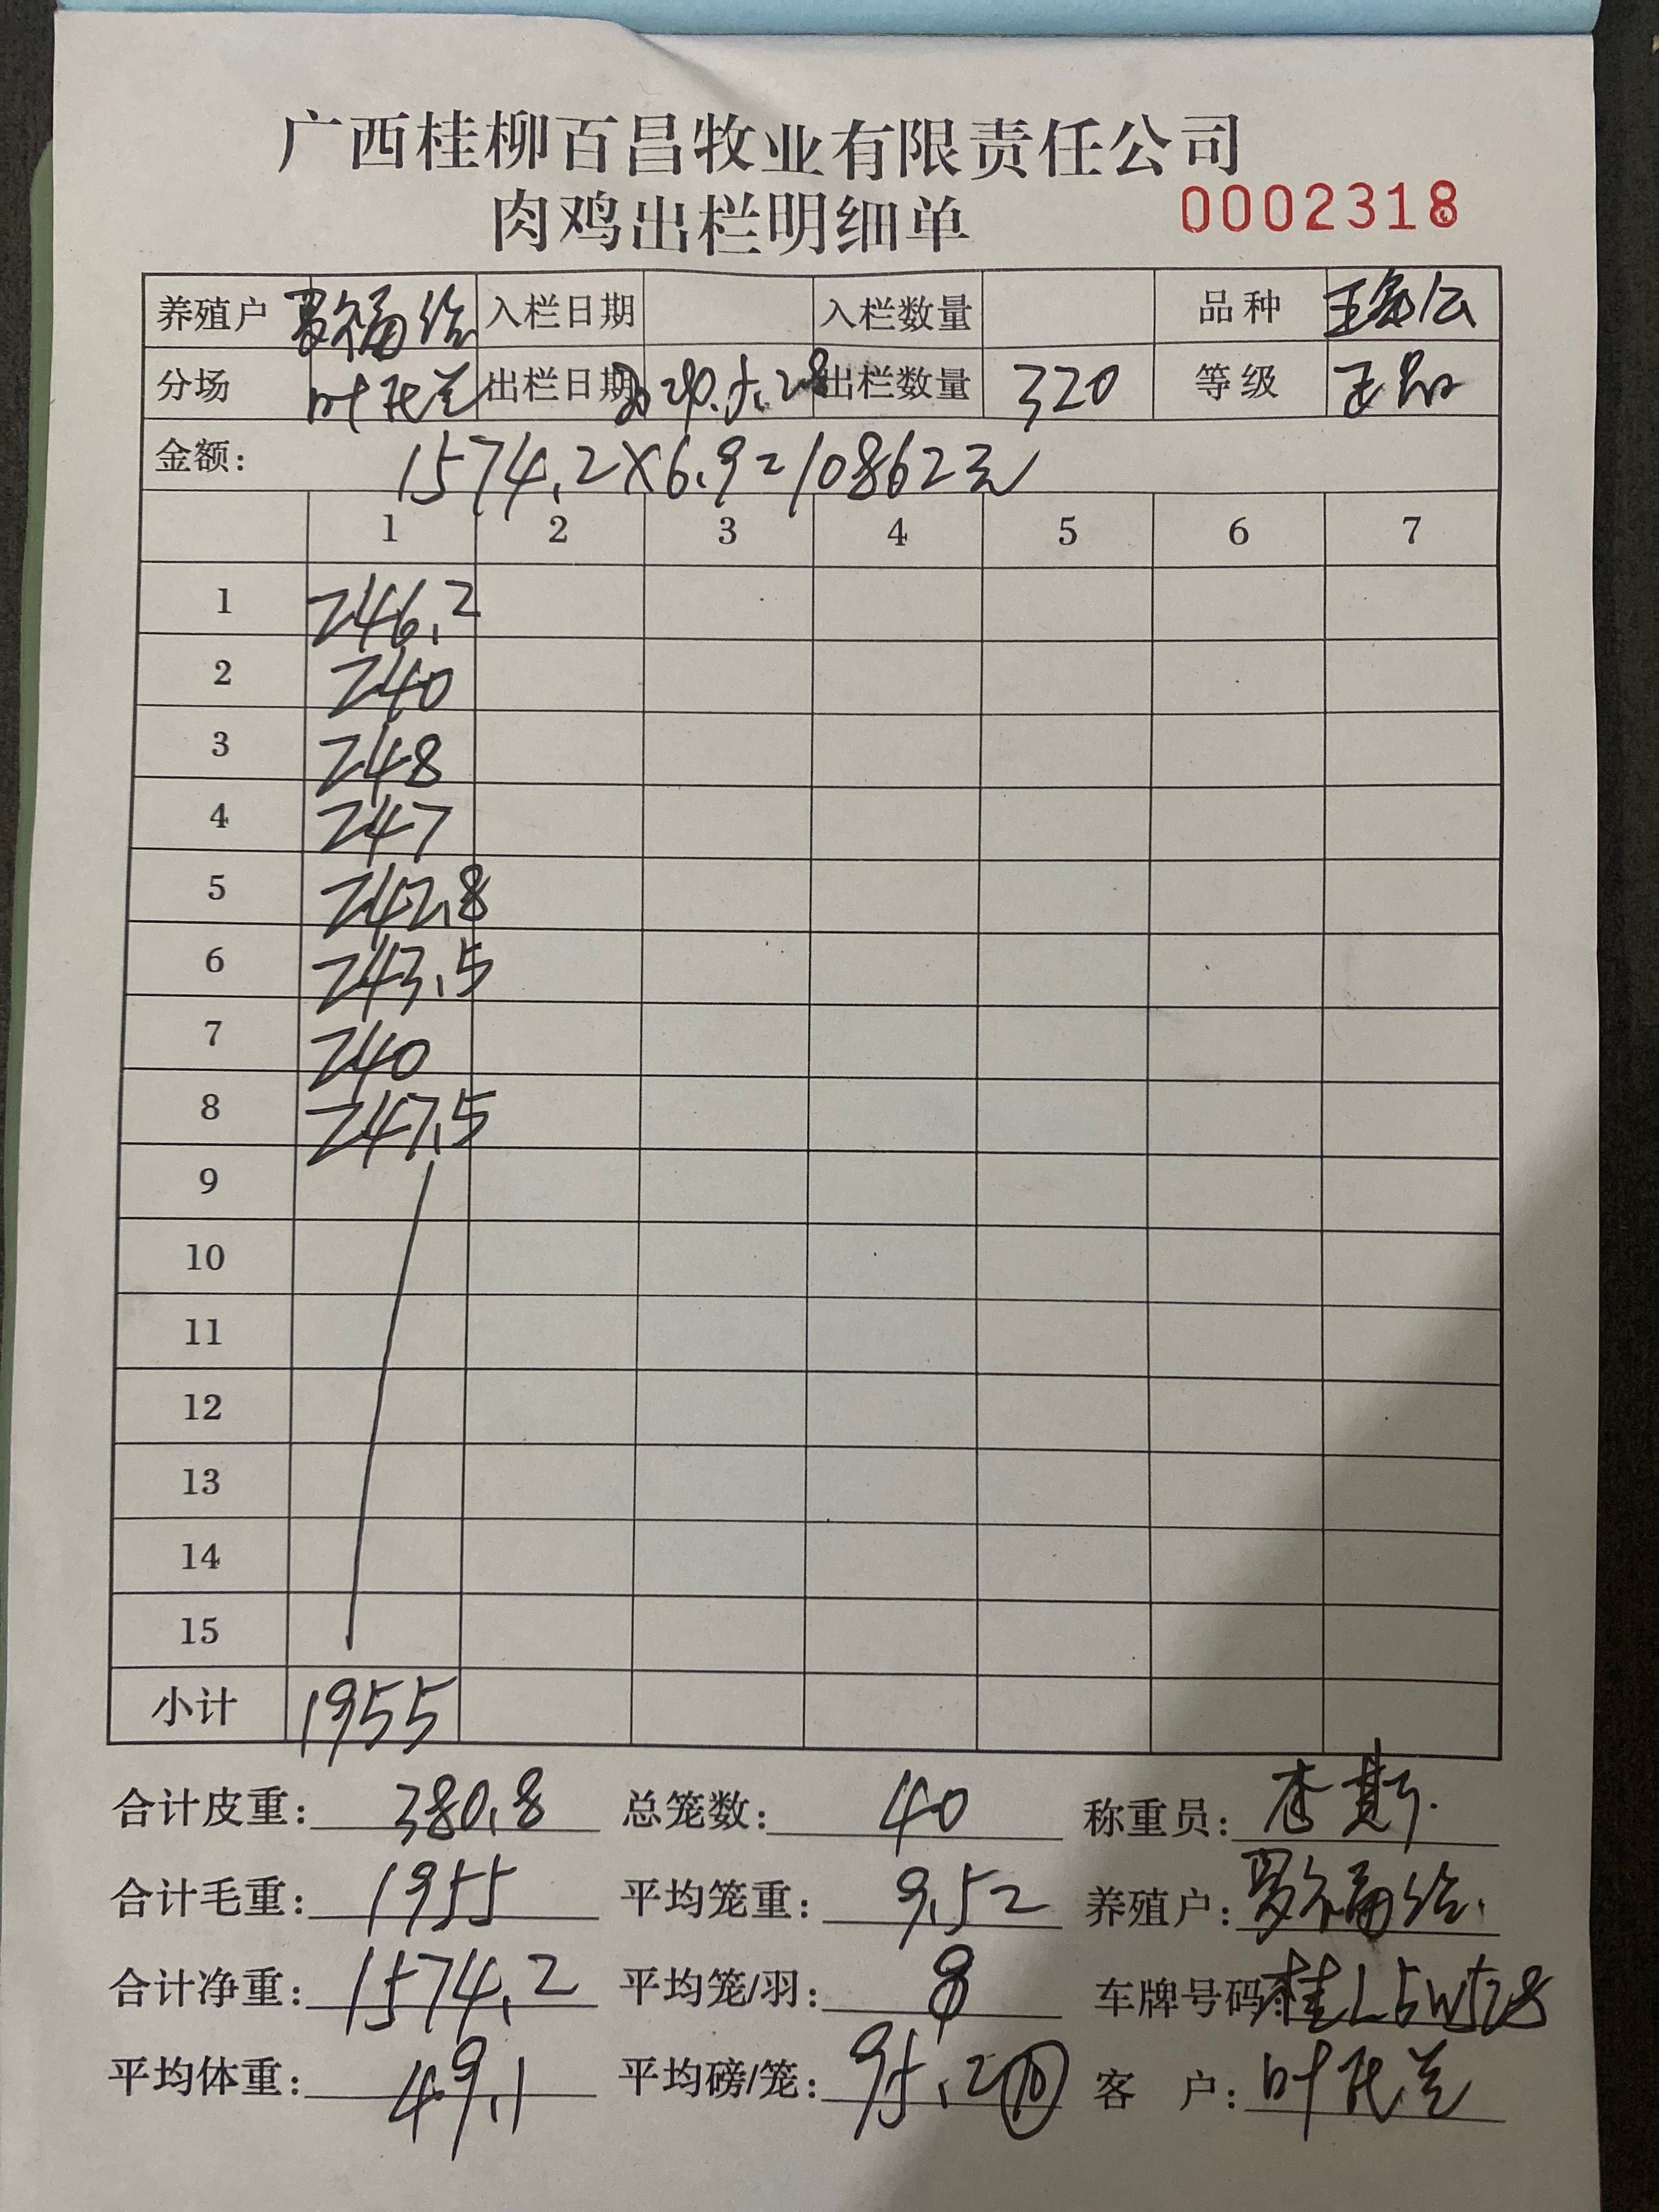 广西桂柳百昌牧业有限责任公司
肉鸡出栏明细单 0002318
养殖户 罗福 入栏日期 入栏数量 品种
分场 叶 出栏日期 出栏数量 320 等级 正品
金额: 1574.2×6.9=10862元
1 2 3 4 5 6 7
1 246.2
2 240
3 248
4 247
5 242.8
6 243.5
7 240
8 247.5
9
10
11
12
13
14
15
小计 1955
合计皮重: 380.8 总笼数: 40 称重员: 李斯
合计毛重: 1955 平均笼重: 9.52 养殖户: 罗福
合计净重: 1574.2 平均笼/羽: 8 车牌号码: 桂L5W528
平均体重: 49.1 平均磅/笼: 95.2 10 客 户: 叶